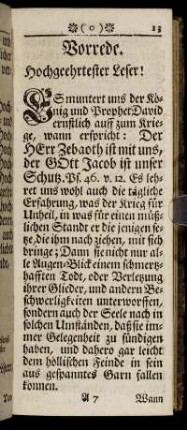 ( o ) 13
Vorrede.
Hochgeehrtester Leser!
ES muntert uns der Kö-
nig und Prophet David
ernstlich auff zum Krie-
ge, wann er spricht: Der
HErr Zebaoth ist mit uns,
der GOtt Jacob ist unser
Schutz. Ps. 46. v. 12. Es leh-
ret uns wohl auch die tägliche
Erfahrung, was der Krieg für
Unheil, in was für einen müß-
lichen Stand er die jenigen se-
tze, die ihm nach ziehen, mit sich
bringe; Dann sie nicht nur al-
le Augen-Blick einem schmertz-
hafften Todt, oder Verletzung
ihrer Glieder, und andern Be-
schwerligkeiten unterworffen,
sondern auch der Seele nach in
solchen Umständen, daß sie im-
mer Gelegenheit zu sündigen
haben, und dahero gar leicht
dem höllischen Feinde in sein
aus gespanntes Garn fallen
können.
A 7 Wann